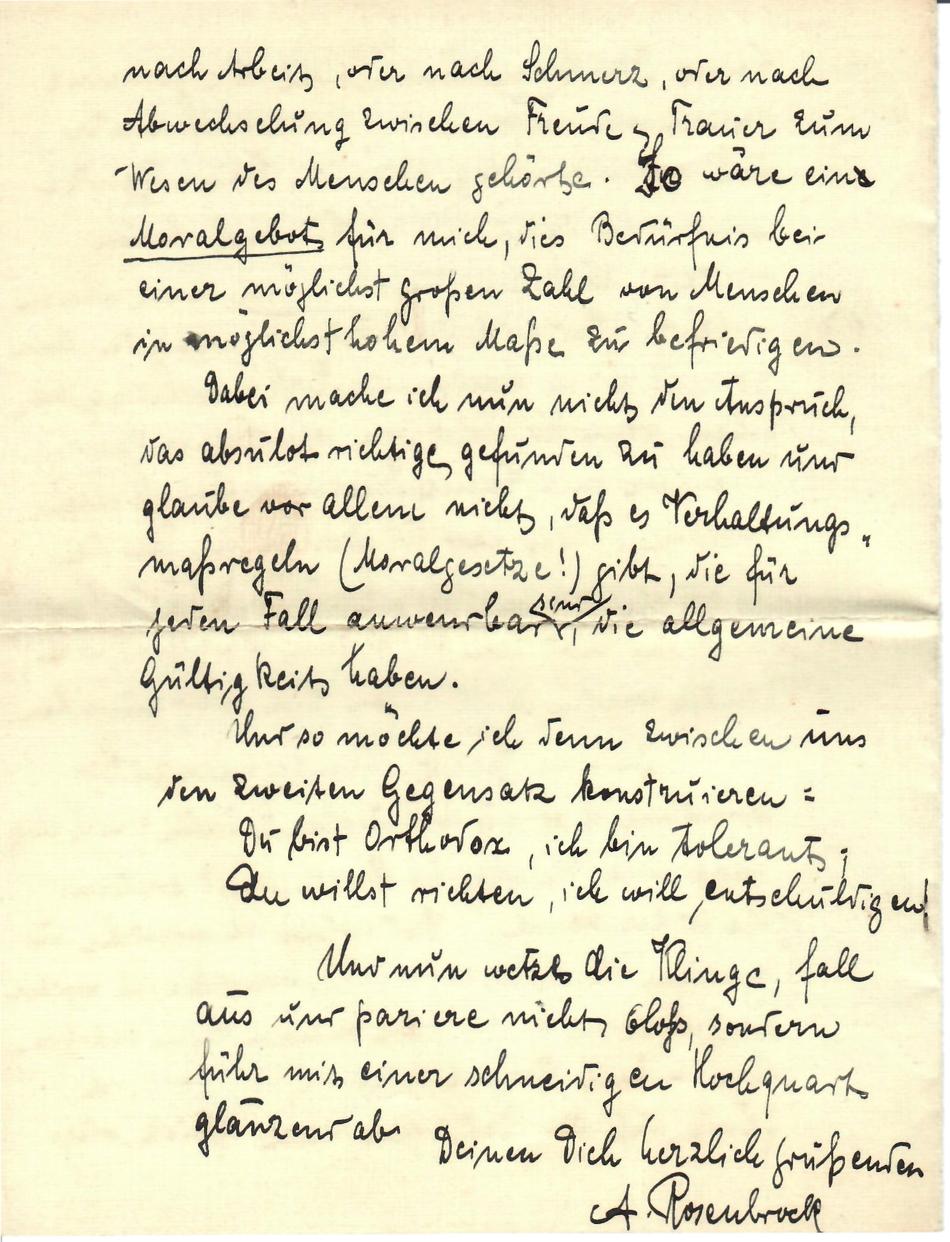 nach Arbeit, oder nach Schmerz, oder nach
Abwechselung zwischen Freude & Trauer zum
Wesen des Menschen gehörte. So wäre eins
Moralgebot für mich, dies Bedürfnis bei
einer möglichst großen Zahl von Menschen
in möglichst hohem Maße zu befriedigen.
Dabei mache ich nun nicht den Anspruch,
das absulot richtige gefunden zu haben und
glaube vor allem nicht, daß es Verhaltungs„
maßregeln (Moralgesetze!) gibt, die für
jeden Fall anwendbar sind, die allgemeine
Gültigkeit haben.
Und so möchte ich denn zwischen uns
den zweiten Gegensatz konstruieren:
Du bist Orthodox, ich bin tolerant;
Du willst richten, ich will entschuldigen!
Und nun wetzt die Klinge, fall
aus und pariere nicht bloß, sondern
führ mit einer schneidigen Hochquart
glänzend ab
Deinen Dich herzlich grüßenden
A. Rosenbrock